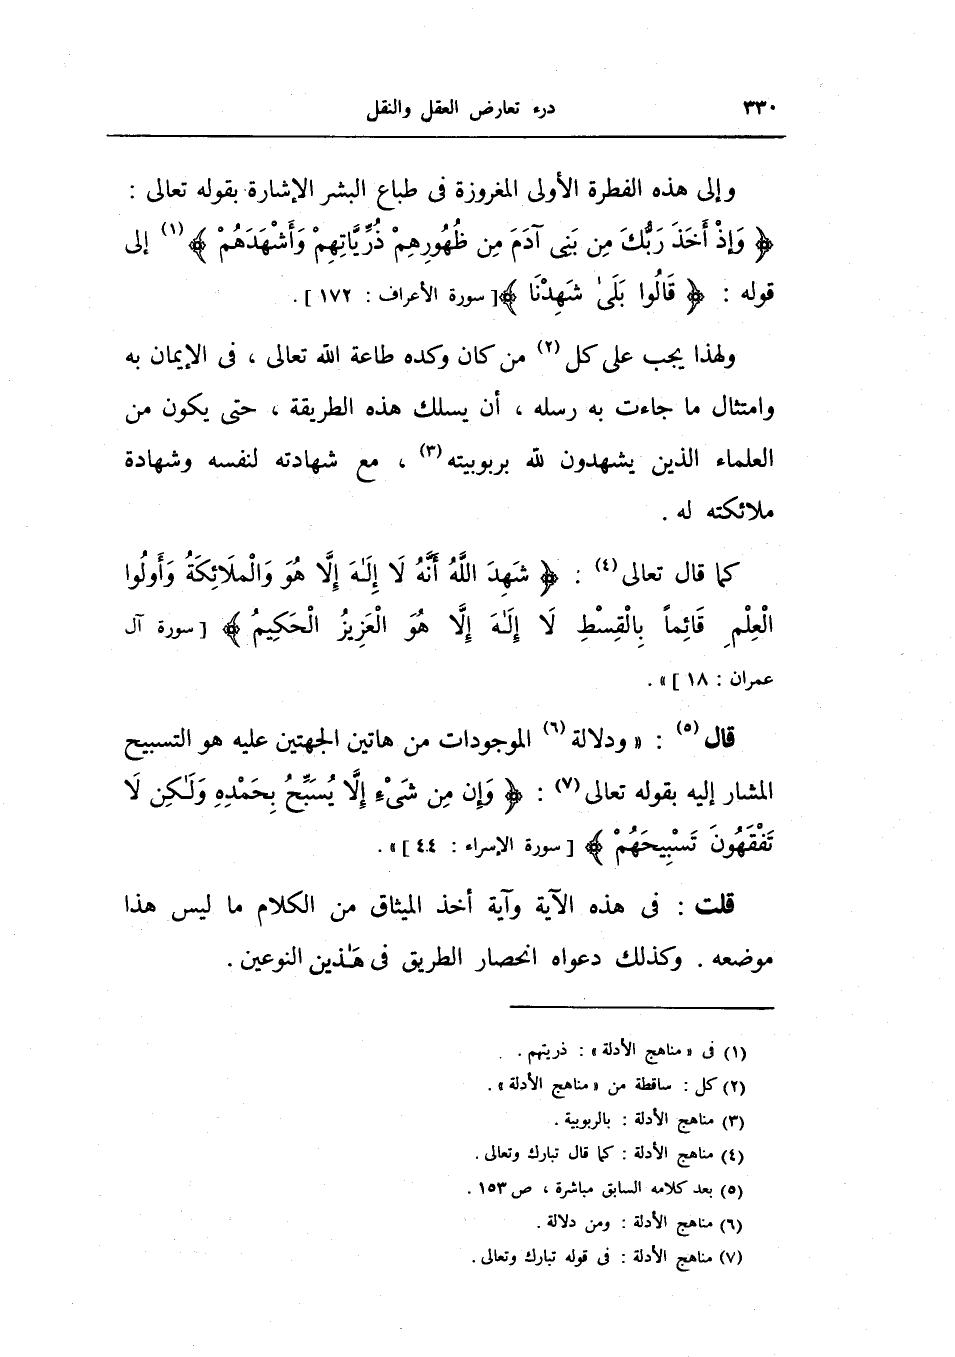 ٣٣٠
درء تعارض العقل والنقل
وإلى هذه الفطرة الأولى المغروزة فى طباع البشر الإشارة بقوله تعالى :
﴿ وَإِذْ أَخَذَ رَبُّكَ مِن بَنِى آدَمَ مِن ظُهُورِهِمْ ذُرِّيَّاتِهِمْ وَأَشْهَدَهُمْ ﴾(١) إلى
قوله : ﴿ قَالُوا بَلَىٰ شَهِدْنَا ﴾[ سورة الأعراف : ١٧٢ ] .
ولهذا يجب على كل(٢) من كان وكده طاعة الله تعالى ، فى الإيمان به
وامتثال ما جاءت به رسله ، أن يسلك هذه الطريقة ، حتى يكون من
العلماء الذين يشهدون لله بربوبيته(٣) ، مع شهادته لنفسه وشهادة
ملائكته له .
كما قال تعالى(٤) : ﴿ شَهِدَ اللَّهُ أَنَّهُ لَا إِلَـٰهَ إِلَّا هُوَ وَالْملَائِكَةُ وَأُولُوا
الْعِلْمِ قَائِماً بِالْقِسْطِ لَا إِلَـٰهَ إِلَّا هُوَ الْعَزِيزُ الْحَكِيمُ ﴾ [ سورة آل
عمران : ١٨ ] » .
قال(٥) : « ودلالة(٦) الموجودات من هاتين الجهتين عليه هو التسبيح
المشار إليه بقوله تعالى(٧) : ﴿ وَإِن مِن شَىْءٍ إِلَّا يُسَبِّحُ بِحَمْدِهِ وَلَـٰكِن لَا
تَفْقَهُونَ تَسْبِيحَهُمْ ﴾ [ سورة الإسراء : ٤٤ ] » .
قلت : فى هذه الآية وآية أخذ الميثاق من الكلام ما ليس هذا
موضعه . وكذلك دعواه انحصار الطريق فى هَـٰذين النوعين .
(١) فى « مناهج الأدلة » : ذريتهم .
(٢) كل : ساقطة من « مناهج الأدلة » .
(٣) مناهج الأدلة : بالربوبية .
(٤) مناهج الأدلة : كما قال تبارك وتعالى .
(٥) بعد كلامه السابق مباشرة ، ص ١٥٣ .
(٦) مناهج الأدلة : ومن دلالة .
(٧) مناهج الأدلة : فى قوله تبارك وتعالى .